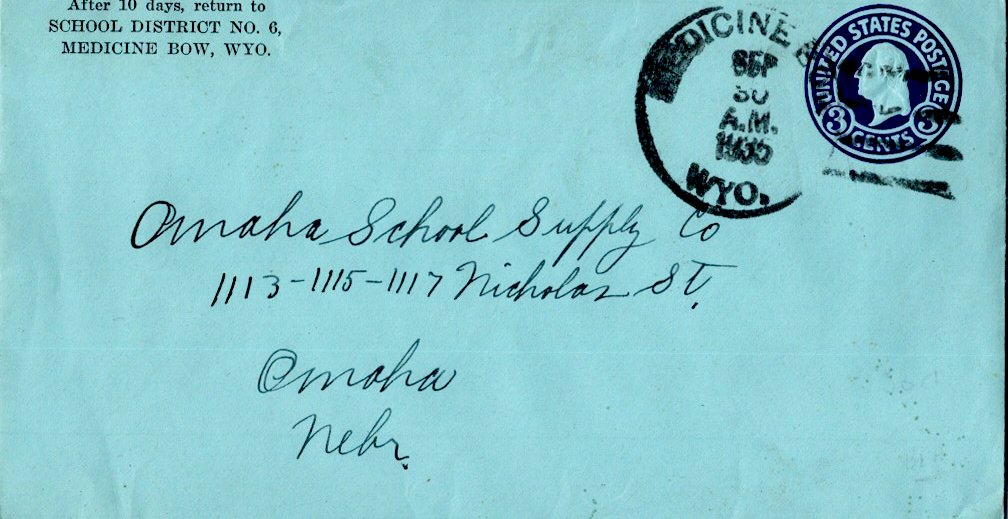 After 10 days, return to
SCHOOL DISTRICT NO. 6,
MEDICINE BOW, WYO.
MEDICINE B
SEP
30
A.M.
1935
WYO.
UNITED STATES POSTAGE
3 CENTS 3
Omaha School Supply Co
1113-1115-1117 Nicholas St.
Omaha
Nebr.